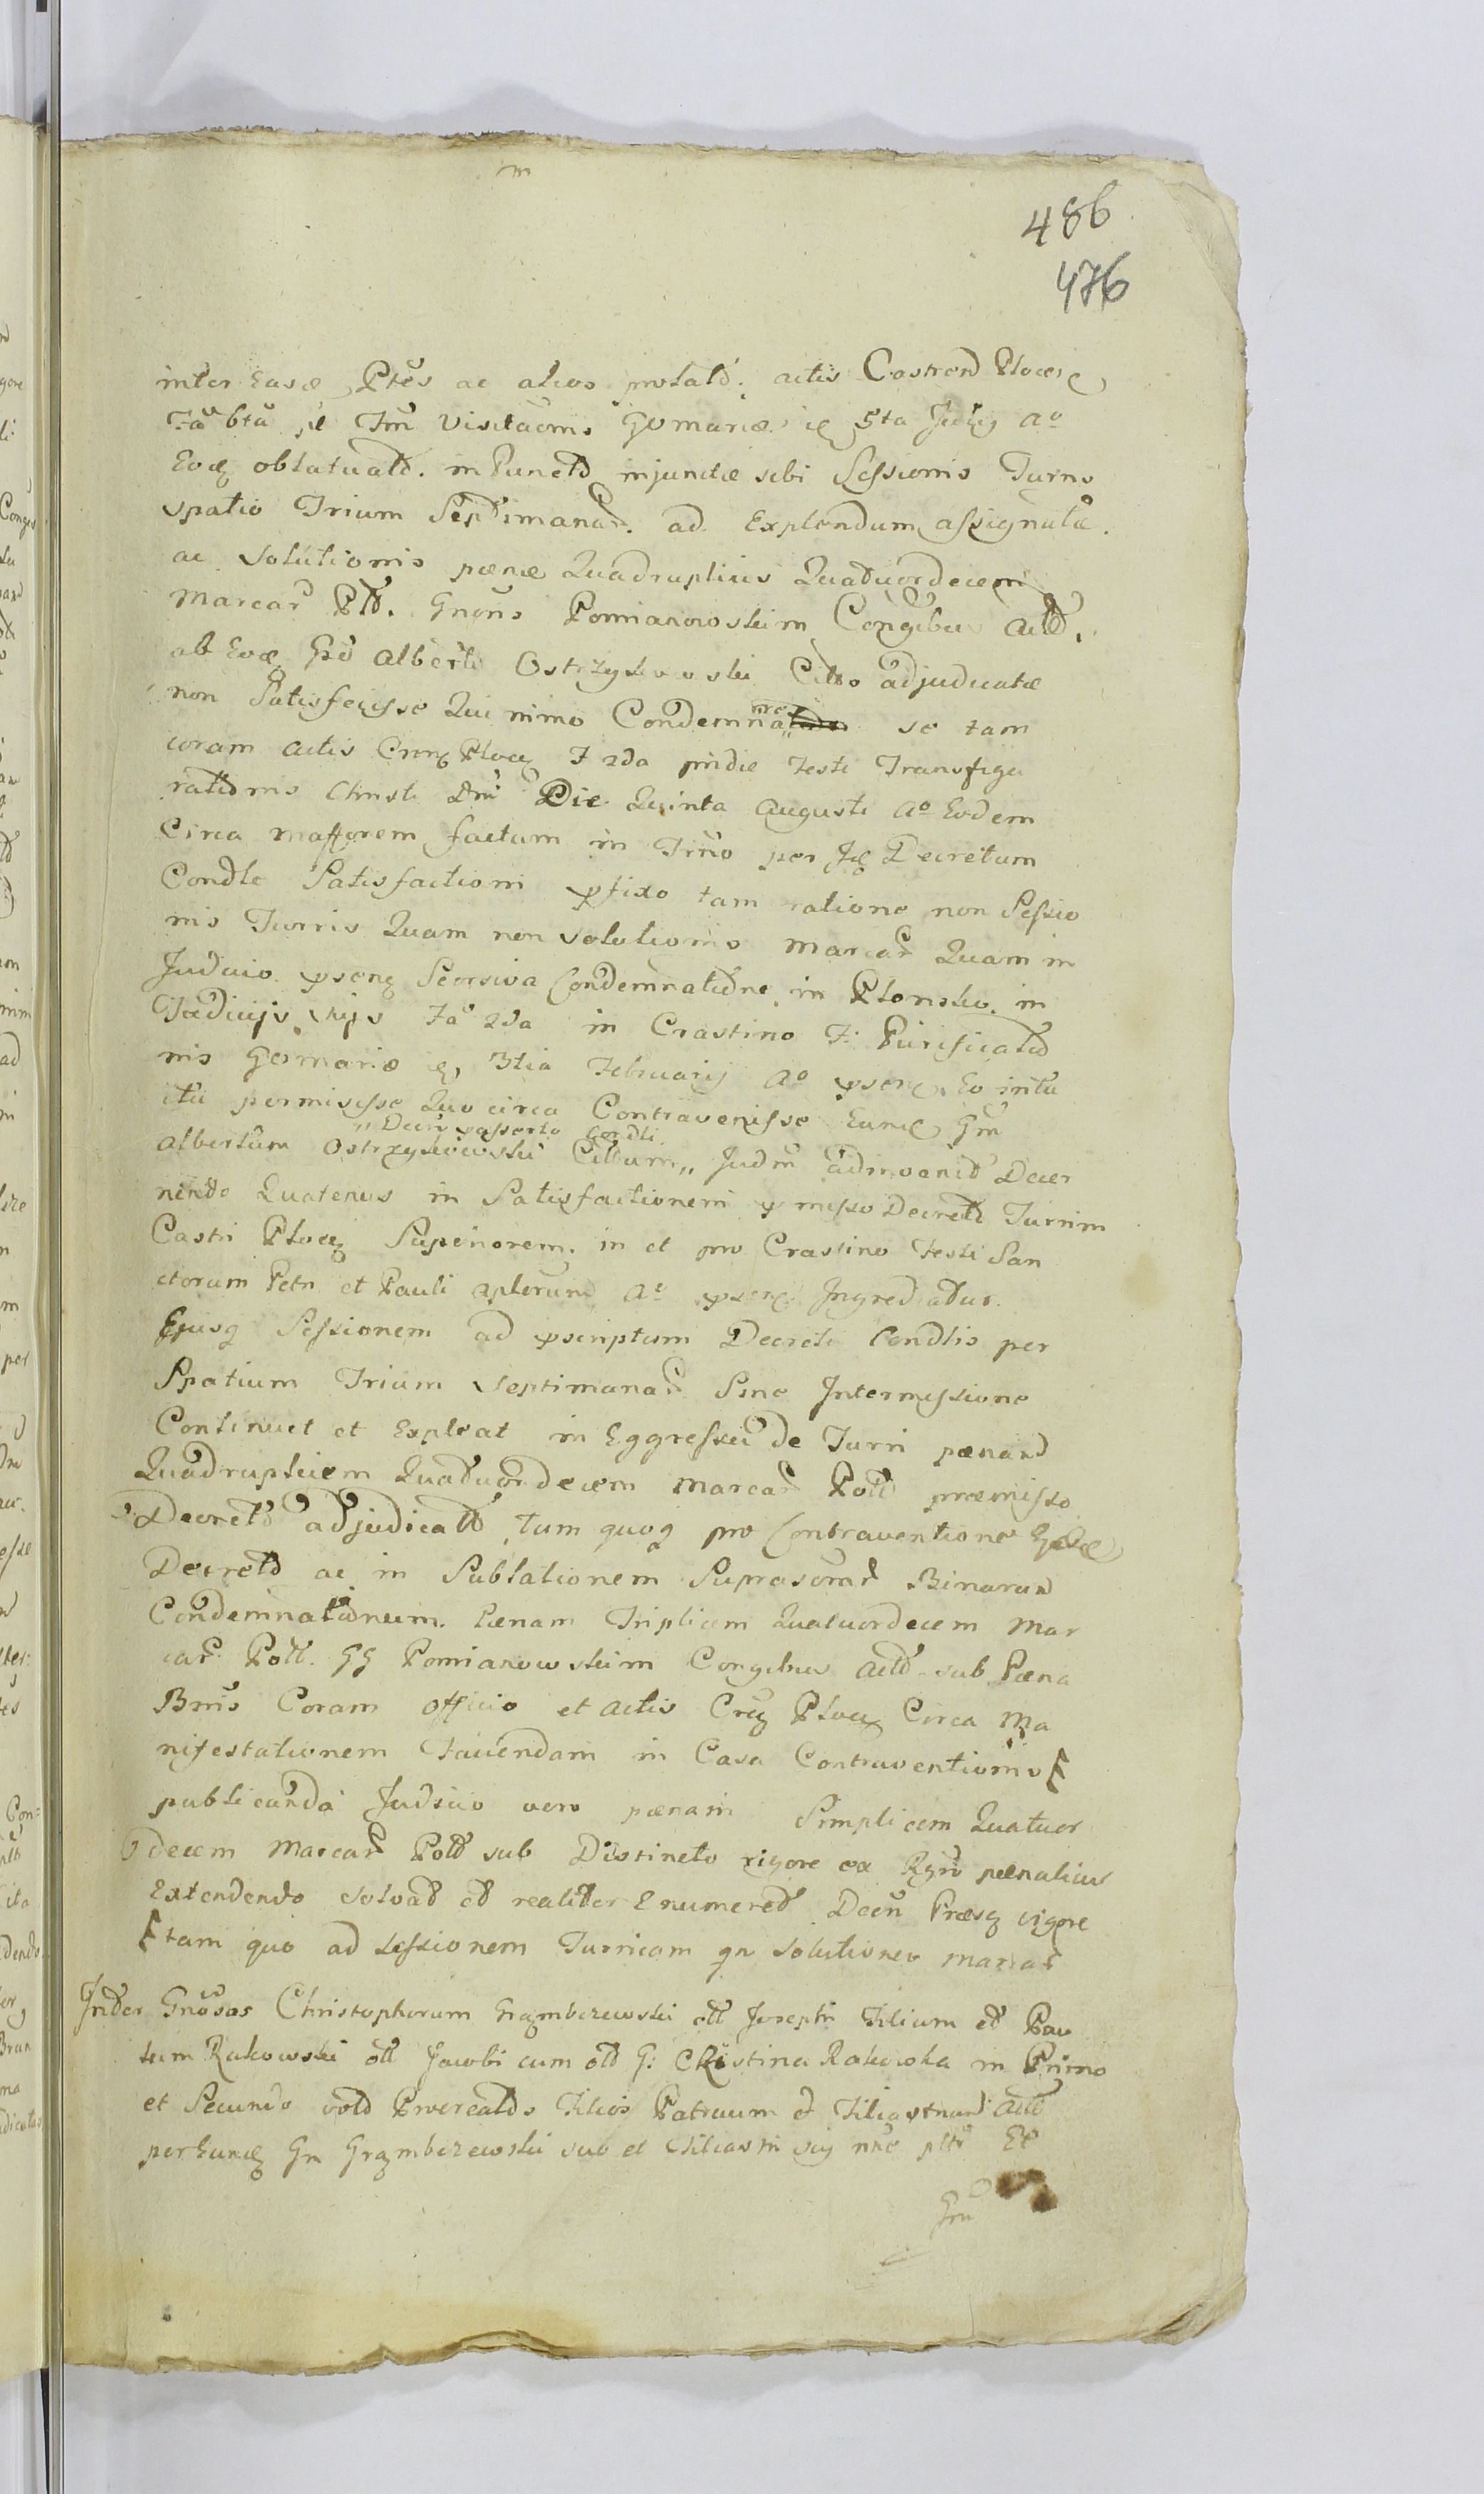 m
486
476
inter easd Ptes ac alios prolato. actis Castren Plocen
Fa 6ta p Fm Visitaonis GVmariæ ie 5ta Julij Ao
Eod oblatuato. in Puncto injunctæ sibi Sessionis Turris
Spatio Trium Septimanar. ad Explendum assignatæ.
ac Solutionis pænæ Quadruplicis Quatuordecem
Marcar Pol. Gnons Pomianowskim Congibus acto.
ab Eod Gso Alberto Ostrzykowski Citto adjudicatæ
non Satisfecisse Qui nimo Condemnanes se tam
coram actis Crens Ploce F 2da pridie Festi Transfigu
rationis Christi Dni Die Quinta Augusti Ao Eodem
Circa Mafforem factum in Trno per Je Decretum
Condle Satisfactioni pfixo tam ratione non Sessio
nis Turris Quam non Solutionis Marcar Quam in
Judicio psenq Seorsiva Condemnatione in Plonsko in
Judicijs hijs Fa 2da in Crastino F. Purificatio
nis GVmariæ e 3tia Februarij Ao psen. Eo intu
itu permisisse Quo circa Contravenisse Eund Gm
Albertum Ostrzykowski Cittum,, Judm admvenit Decer
,, Decro passerto Condli
nendo Quatenus in Satisfactionem pmisso Decreti Turrim
Castri Ploce Superiorem. in et pro Crastino Festi San
ctorum Petri et Pauli Aplorum Ao psen Ingrediatur.
Ejusq Sessionem ad pscriptum Decreti Condlis per
Spatium Trium Septimanar Sine Intermissione
Continuet et Expleat in Eggressu de Turri pænam
Quadruplicem Quatuordecem Marcar Poll præmisso
Decreto adjudicato tum quoq pro Contraventione
Decreto ac in Sublationem Suprascrar Binarum
Condemnationum. Pænam Triplicem Quatuordecem Mar
car Poll. GG Pomianowskim Congibus acto sub Pæna
Bnis Coram Officio et Actis Crs Ploce Circa Ma
nifestationem Favendam in Casu Contraventionis
publicanda Judicio vero pænam Simplicem Quatuor
decem Marcar Poll sub Distincto rigore ex Rgro pænalius
Extendendo Solvat et realiter Enumeret Decri Præsq vigore
tam quo ad Sessionem Turricam qn Solutionem Marcar
Inter Gnosos Christophorum Grąmbczewski oll Josephi Filium et Pau
lum Rakowski oll Jacobi cum oll G: Christina Rakowska in Primo
et Secundo voto Procreatos Filios Patruum et Filiastrum acto
per Eund Gn Grąmbczewski sub et Filiastri sij nne ptto Et
Gm